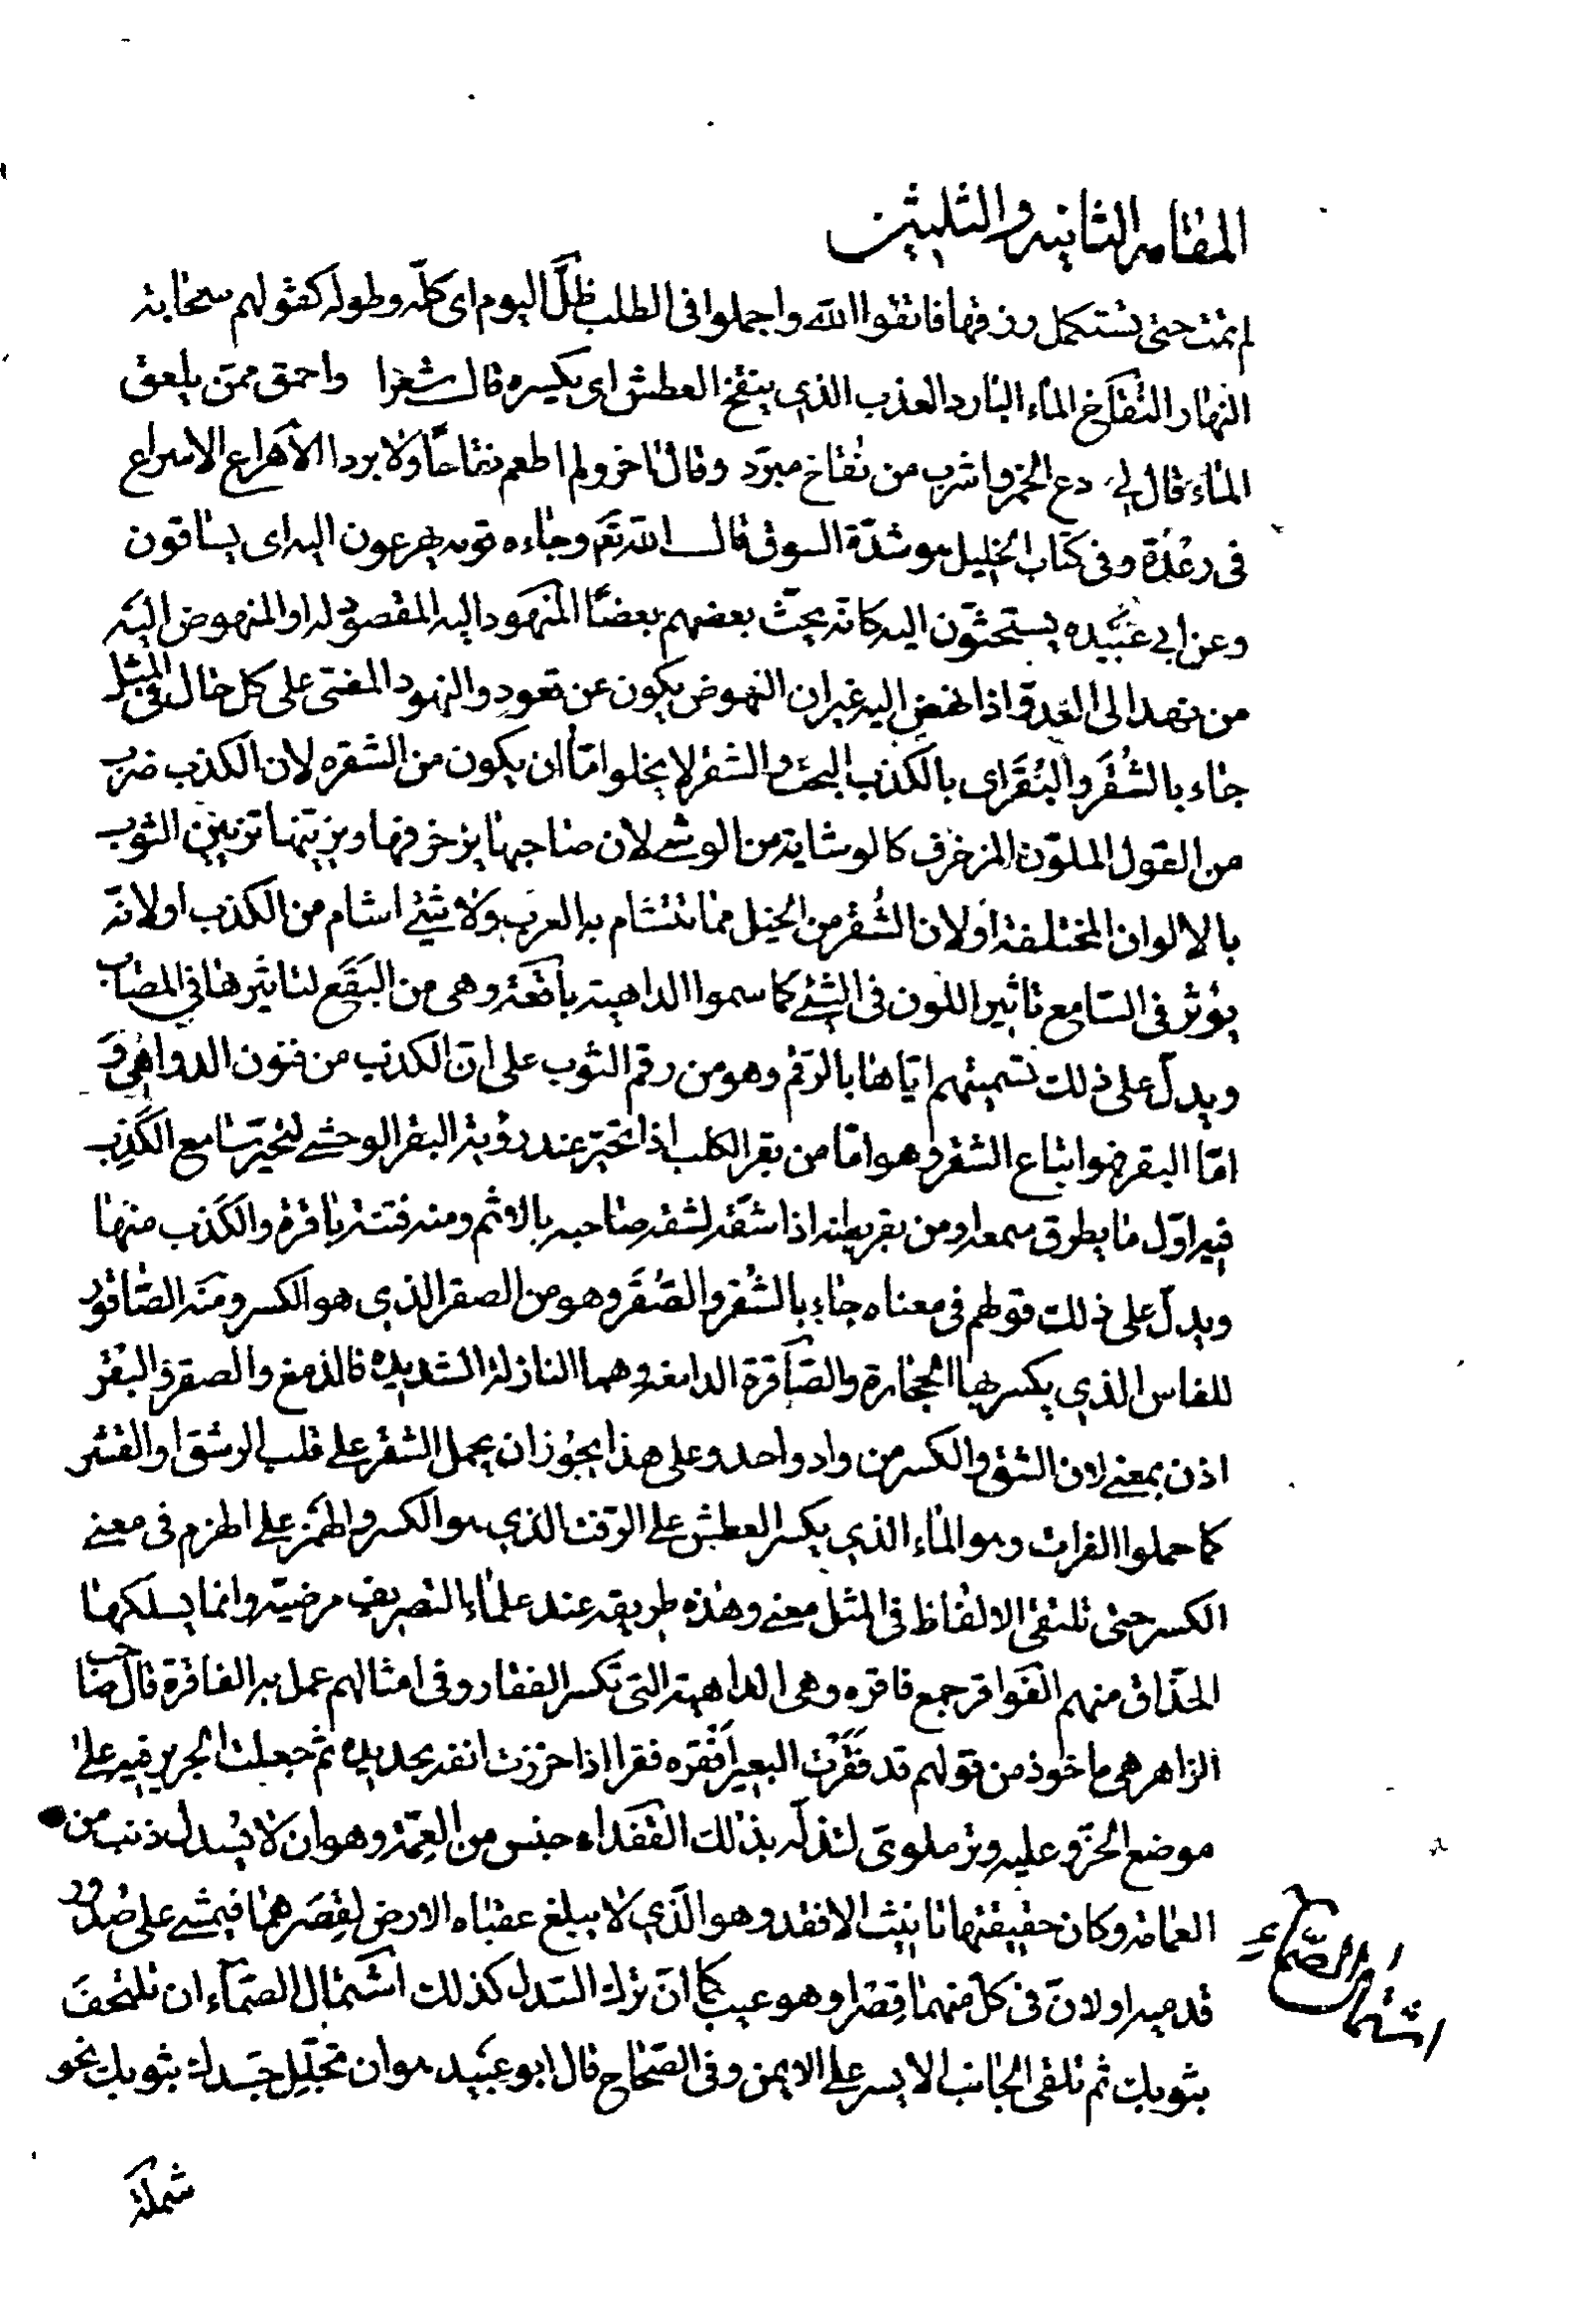 المقامة الثانية والثلثين
لم تمت حتى تستكمل رزقها فاتقوا الله واجملوا فى الطلب ظلّ اليوم اى كلّه وطوله كقولهم سحابة
النهار النقاخ الماء البارد العذب الذي ينقخ العطش اى يكسره قال شعرا واحمق ممن يلعق
الماء قال لي دع الخمر واشرب من نقاخ مبرّد وقال اخر ولم اطعم نقاخا ولا بردا الأهراع الاسراع
فى رعدة وفى كتاب الخليل هو شدّة السوق قال الله تعم وجاءه قومه يهرعون اليه اى يساقون
وعن ابي عبيده يستحثّون اليه كانه يحثّ بعضهم بعضا المنهود اليه المقصود له او المنهوض اليه
من نهد الى العدوّ اذا نهض اليه غير ان النهوض يكون عن قعود والنهود المضى على كل حال فى المثل
جاء بالشُقَر والبُقَر اى بالكذب البحت والشقر لا يخلوا امّا ان يكون من الشقره لان الكذب ضرب
من القول الملوّن المزخرف كالوشاية من الوشى لان صاحبها يزخرفها ويزيّنها تزيين الثوب
بالالوان المختلفة اولان الشُقر من الخيل مما تتشام به العرب ولا شيئ اشام من الكذب اولانّه
يؤثر فى السّامع تاثير اللون فى الشئ كما سموا الداهية باقعة وهى من البَقَع لتاثيرها في المصاب
ويدلّ على ذلك تسميتهم ايّاها بالرقم وهو من رقم الثوب على انّ الكذب من فنون الدواهي و
امّا البقر فهو اتباع الشقر وهو امّا من بقر الكلب اذا تحيّر عند رؤية البقر الوحشے لتحيّر سامع الكذب
فيه اوّل ما يطرق سمعه او من بقر بطنه اذا شقّه لشقه صاحبه بالاثم ومنه فتنة باقرة والكذب منها
ويدلّ على ذلك قولهم فى معناه جاء بالشُقر والصُقَر وهو من الصقر الذي هو الكسر ومنه الصّاقور
للفاس الذي يكسر بها الحجارة والصّاقرة الدامغة وهما النازلة الشديده فالدمغ والصقر والبُقر
اذن بمعنى لان الشق والكسر من واد واحد وعلى هذا يجوز ان يحمل الشقر على قلب الرشق او القشر
كما حملوا الفرات وهو الماء الذي يكسر العطش على الرفت الذي هو الكسر والهمز على الهزم فى معنے
الكسر حتى تلتقى الالفاظ فى المثل معنے وهذه طريقه عند علماء التصريف مرضيّة وانما يسلكها
الحذّاق منهم الفَواقر جمع فاقره وهى الداهية التى تكسر الفقار وفى امثالهم عمل به الفاقرة قال صاحب
الزاهر هى ماخوذ من قولهم قد فقرت البعير افقره فقرا اذا حززت انفه بحديده ثم جعلت الجرير فيه على
موضع الحزّ وعليه وتر ملوىّ لتذلّه بذلك القفداء جنس من العِمّة وهو ان لا يُسدل ذنب من
العمامة وكان حقيقتها تانيث الاقفد وهو الّذي لا يبلغ عقباه الارض لقِصَرهما فيمشے على صدور
قدميه او لانّ فى كل منهما قِصَرا وهو عيب كما انّ ترك السّدل كذلك اشتمال الصّمآء ان تلتحف
بثوبك ثم تلقى الجانب الايسر على الايمن وفى الصّحاح قال ابو عبيد هو ان تجلّل جسدك بثوبك نحو
اشتمال الصّماء
شملة